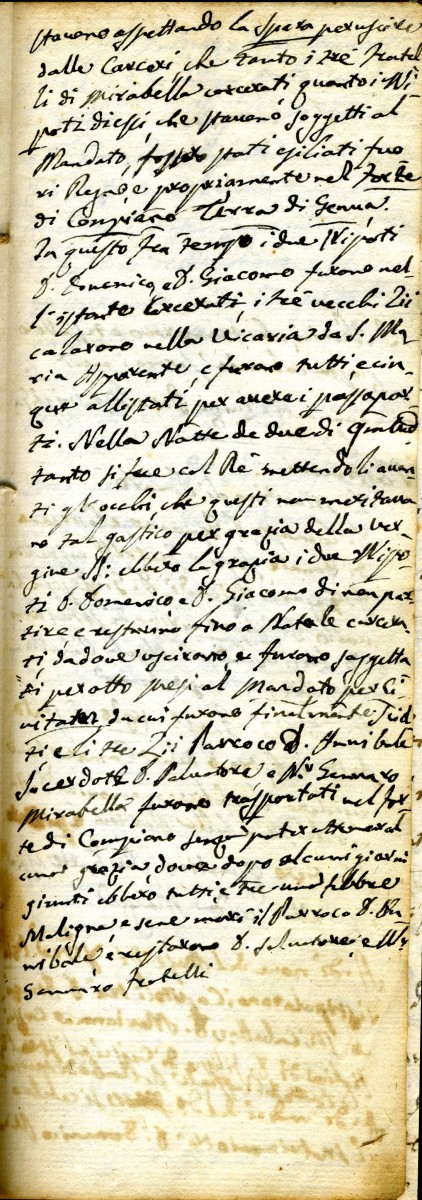 stavano aspettando la spera per uscire
dalle Carceri, che tanto i trè Fratel
li di Mirabella carcerati quanto i Ni
poti di essi, che stavano soggetti al
Mandato, fossero stati esiliati fuo
ri Regno e propriamente nel Forte
di Compiano Terra di Genua.
In questo fra tempo i due Nipoti
D. Domenico, e D. Giacomo furono nel
l'istante Carcerati, i trè vecchi Zii
calarono nella Vicaria da S. Ma
ria Apparente, e furono tutti e cin
que allistati per avere i passapor
ti. Nella Notte de due di
tanto si fece col Rè mettendoli avan
ti gl'occhi, che questi non meritava
no tal gastico per grazia della Ver
gine SS: ebbero la grazia i due Nipo
ti D. Domenico e D. Giacomo di non par
tire e restarono fino a Natale carcera
ti, da dove uscirono, e furono soggetta
ti per otto mesi al Mandato per Ci
vitatem da cui furono finalmente
ti e li tre Zii Parroco D. Annibale
Sacerdote D. Salvatore e Nr. Gennaro
Mirabella furono trasportati nel For
te di Compiano senza poter ottener al
cuna grazia, dove dopo alcuni giorni
giunti ebbero tutti e tre una febbre
Maligna e se ne morì il Parroco D. An
nibale e restarono D. Salvatore, e Nr.
Gennaro Fratelli